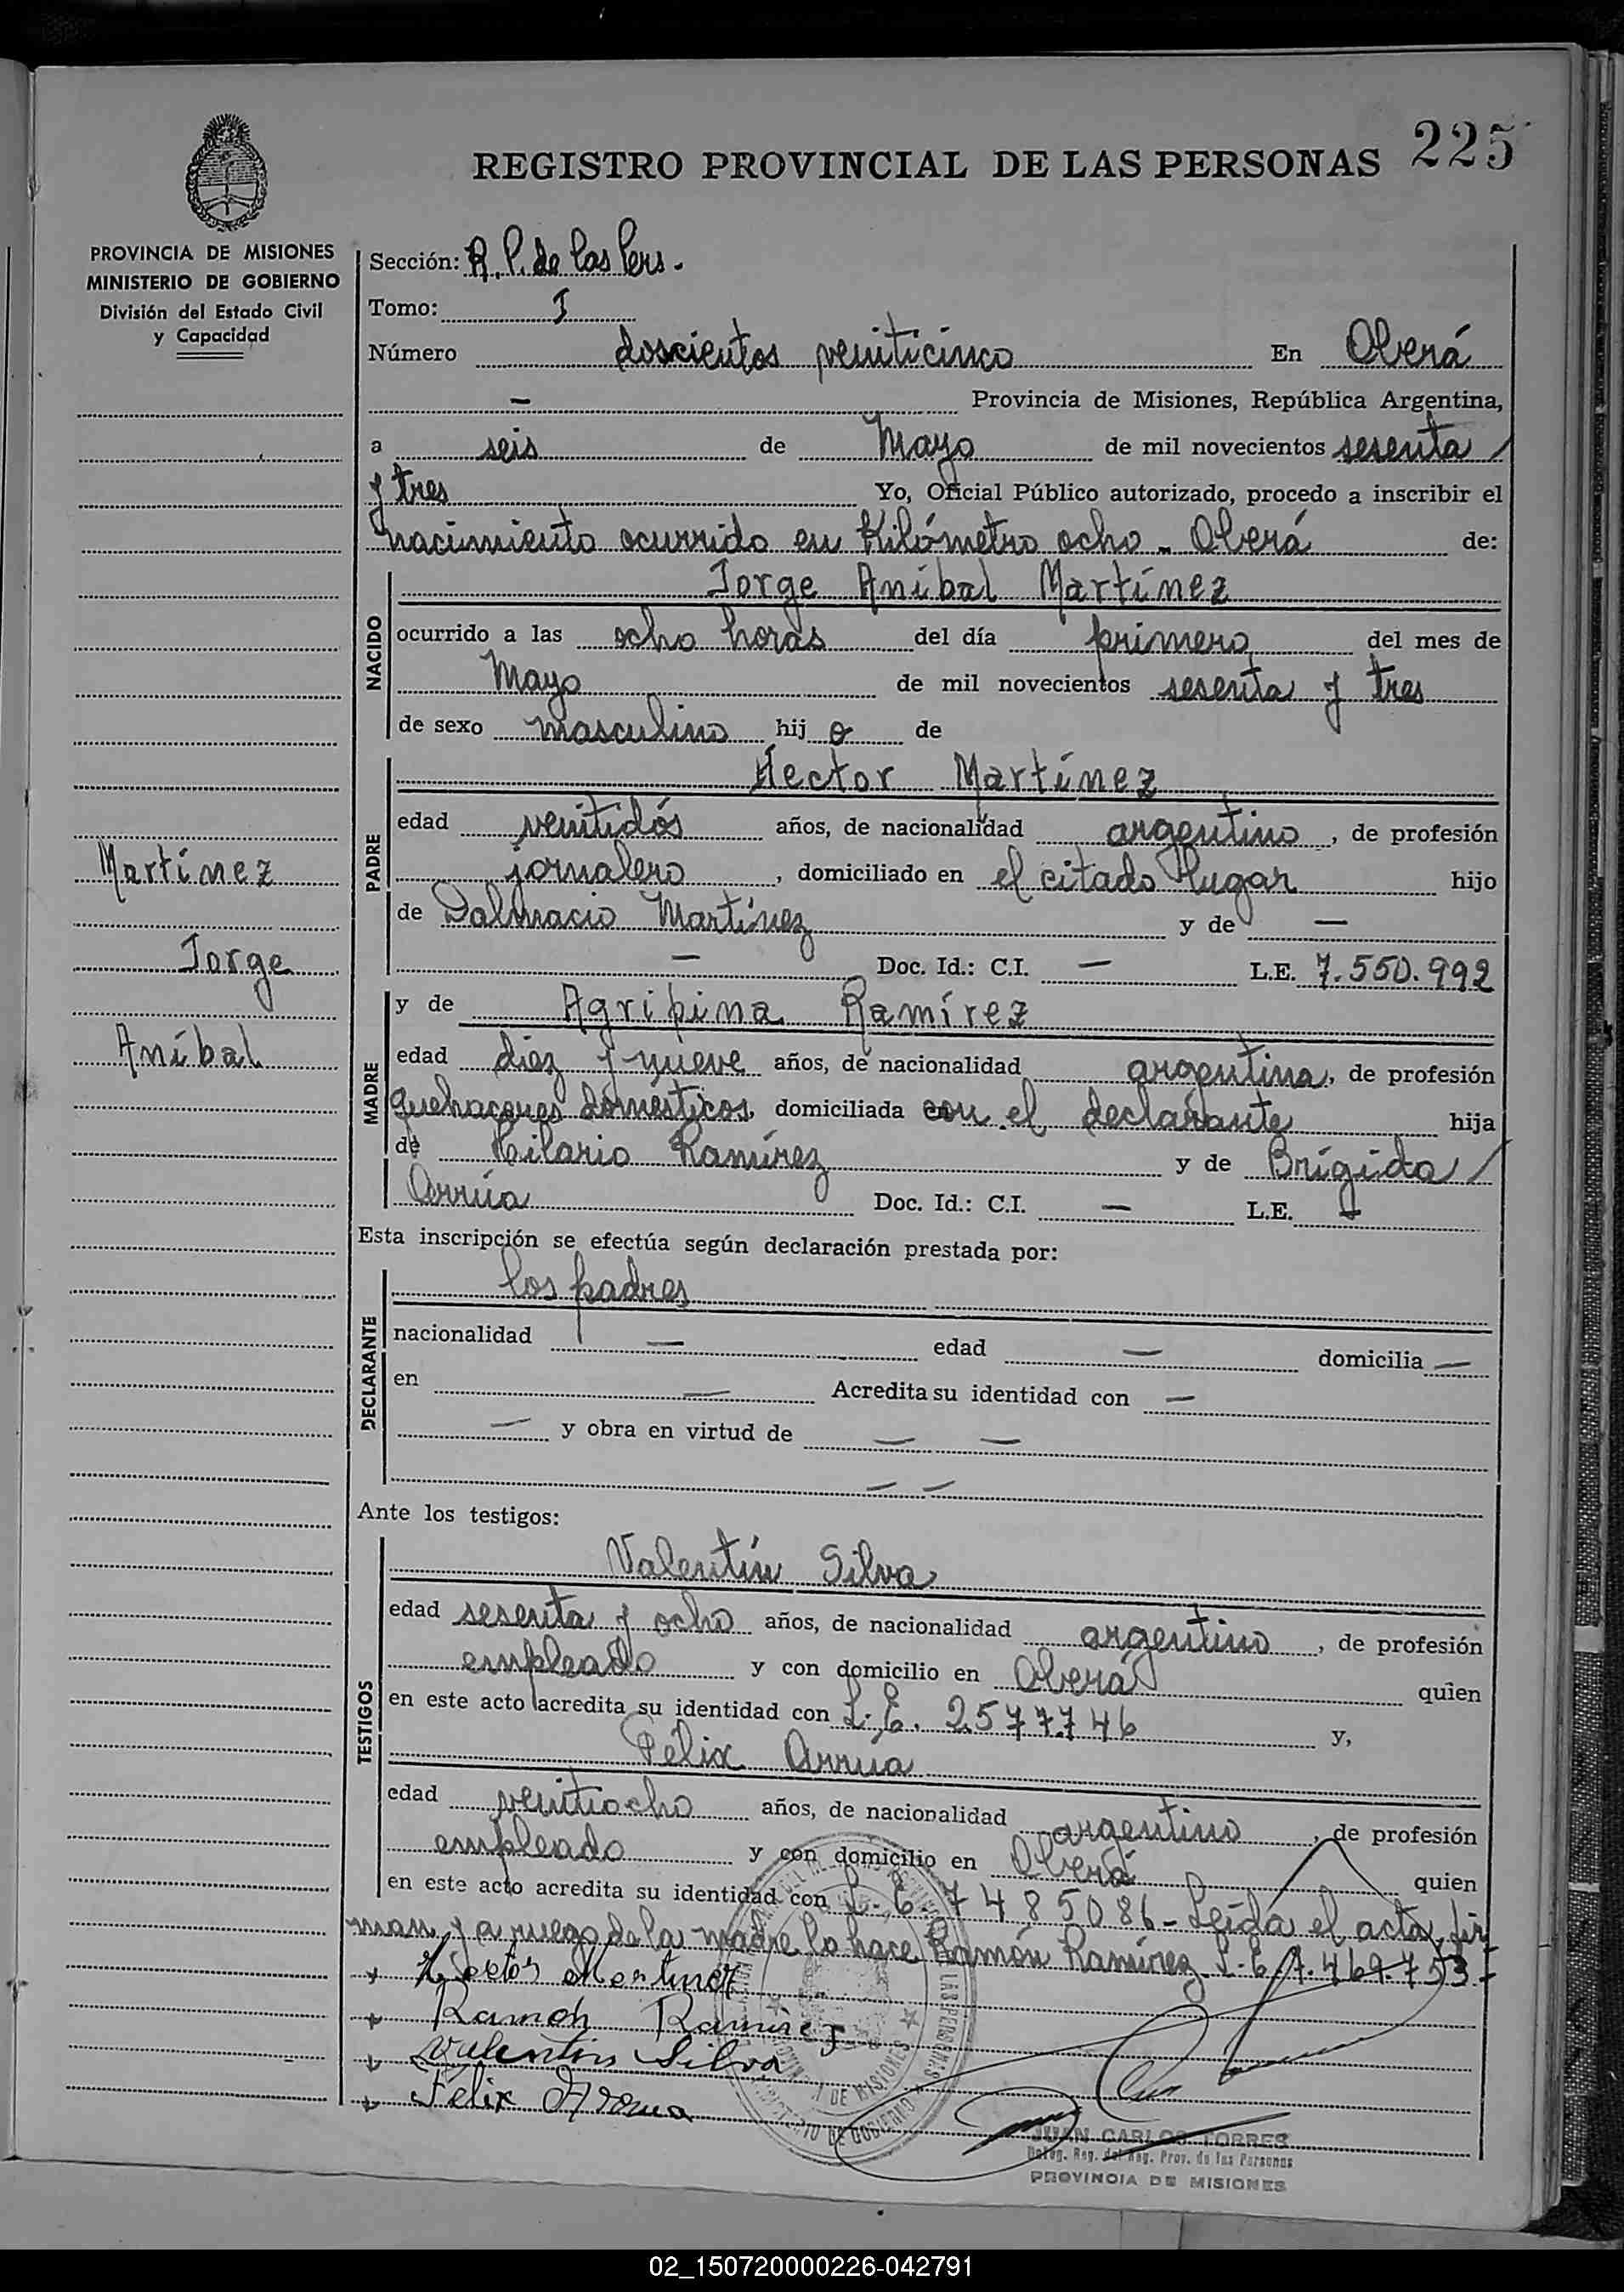 225
REGISTRO PROVINCIAL DE LAS PERSONAS
PROVINCIA DE MISIONES
MINISTERIO DE GOBIERNO
División del Estado Civil
y Capacidad
Martínez
Jorge
Aníbal
Sección: R. P. de las Pers.
Tomo: I
Número doscientos veinticinco En Oberá
— Provincia de Misiones, República Argentina,
a seis de Mayo de mil novecientos sesenta /
y tres Yo, Oficial Público autorizado, procedo a inscribir el
nacimiento ocurrido en Kilómetro ocho - Oberá de:
NACIDO
Jorge Aníbal Martínez
ocurrido a las ocho horas del día primero del mes de
Mayo de mil novecientos sesenta y tres
de sexo masculino hij o de
PADRE
Hector Martínez
edad venitidós años, de nacionalidad argentino, de profesión
jornalero, domiciliado en el citado lugar hijo
de Dalmacio Martínez y de —
— Doc. Id.: C.I. — L.E. 7.550.992
MADRE
y de Agripina Ramírez
edad diez y nueve años, de nacionalidad argentina, de profesión
quehaceres domesticos, domiciliada con el declarante hija
de Hilario Ramírez y de Brígida /
Arrúa Doc. Id.: C.I. — L.E. —
Esta inscripción se efectúa según declaración prestada por:
DECLARANTE
los padres
nacionalidad — edad — domicilia —
en — Acredita su identidad con —
— y obra en virtud de — —
— —
Ante los testigos:
TESTIGOS
Valentín Silva
edad sesenta y ocho años, de nacionalidad argentino, de profesión
empleado y con domicilio en Oberá quien
en este acto acredita su identidad con L. E. 2.577.746 y,
Félix Arrua
edad venitiocho años, de nacionalidad argentino, de profesión
empleado y con domicilio en Oberá quien
en este acto acredita su identidad con L. E. 7485086 - Leída el acta, fir
man y a ruego de la madre lo hace Ramón Ramírez L. E. 7.469.753.-
Hector Martinez
Ramón Ramirez
Valentin Silva
Félix Arrua
PROVINCIA DE MISIONES
JUAN CARLOS TORRES
Deleg. Reg. del Reg. Prov. de las Personas
PROVINCIA DE MISIONES
02_150720000226-042791